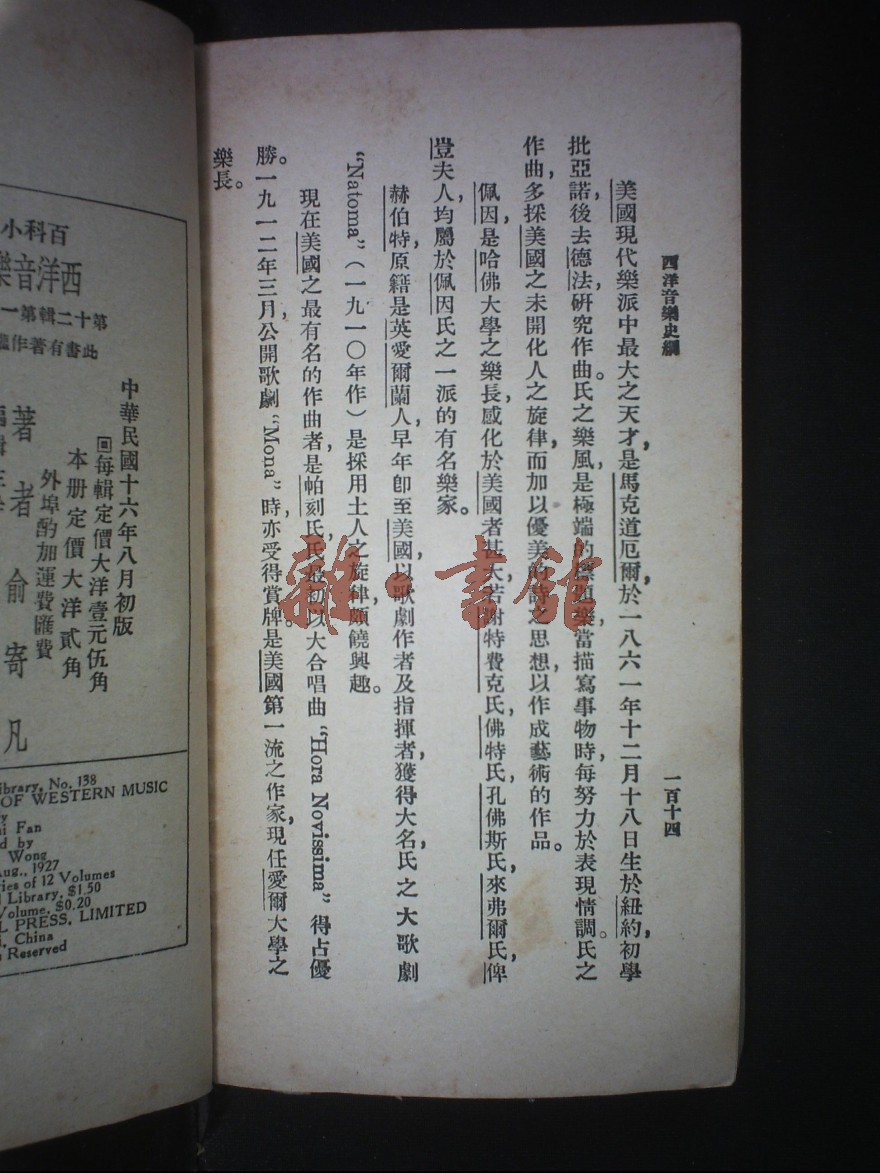 西洋音樂史綱
一百十四
美國現代樂派中最大之天才,是馬克道厄爾,於一八六一年十二月十八日生於紐約,初學
批亞諾,後去德法,研究作曲。氏之樂風,是極端的標題樂,當描寫事物時,每努力於表現情調。氏之
作曲,多採美國之未開化人之旋律,而加以優美的詩之思想,以作成藝術的作品。
佩因是哈佛大學之樂長,感化於美國者甚大,若謝特費克氏,佛特氏,孔佛斯氏,來弗爾氏,俾
豈夫人,均屬於佩因氏之一派的有名樂家。
赫伯特,原籍是英愛爾蘭人,早年卽至美國,以歌劇作者及指揮者,獲得大名,氏之大歌劇
“Natoma”(一九一〇年作)是採用土人之旋律,頗饒興趣。
現在美國之最有名的作曲者,是帕刻氏,氏最初以大合唱曲“Hora Novissima”得占優
勝。一九一二年三月,公開歌劇“Mona”時,亦受得賞牌。是美國第一流之作家,現任愛爾大學之
樂長。
雜·書館
百科小
西洋音樂
第十二輯第一
此書有著作
中華民國十六年八月初版
每輯定價大洋壹元伍角
本册定價大洋貳角
外埠酌加運費匯費
著者 俞寄凡
ibrary, No. 138
OF WESTERN MUSIC
y
i Fan
d by
Wong
Aug., 1927
ies of 12 Volumes
l Library, $1.50
Volume, $0.20
L PRESS, LIMITED
, China
Reserved